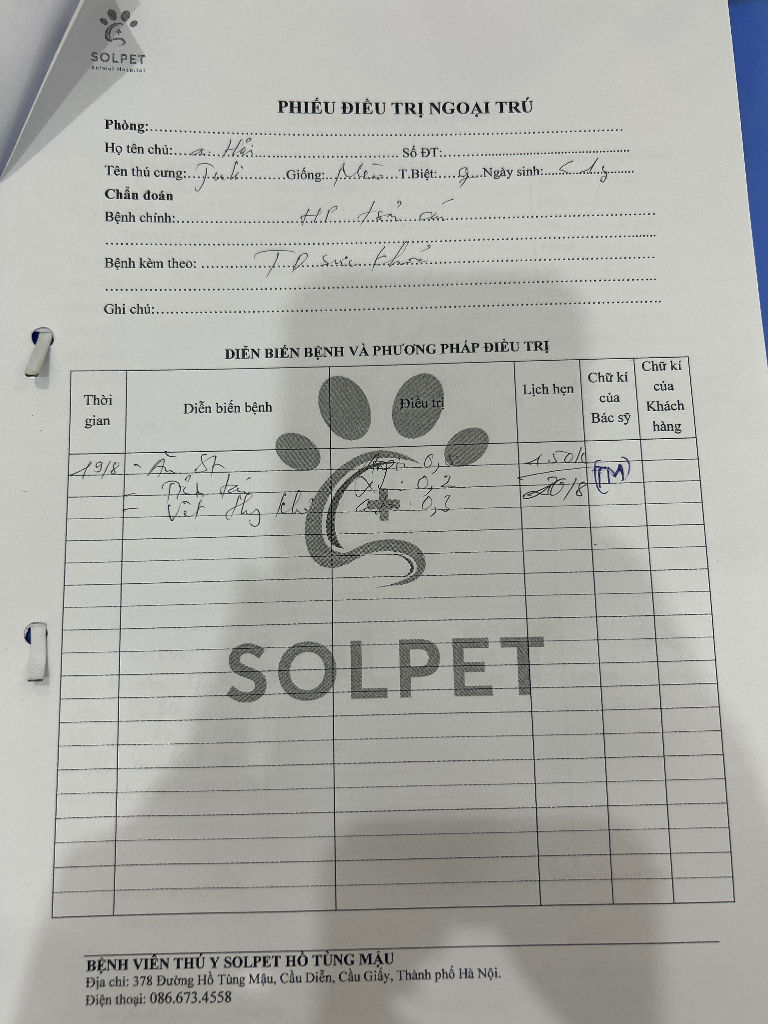 SOLPET
Animal Hospital
PHIẾU ĐIỀU TRỊ NGOẠI TRÚ
Phòng:
Họ tên chủ: a. Hải Số ĐT:
Tên thú cưng: Giống: Mèo T.Biệt: Ngày sinh:
Chẩn đoán
Bệnh chính: HP
Bệnh kèm theo: TD sức khoẻ
Ghi chú:
DIỄN BIẾN BỆNH VÀ PHƯƠNG PHÁP ĐIỀU TRỊ
Thời gian Diễn biến bệnh Điều trị Lịch hẹn Chữ kí của Bác sỹ Chữ kí của Khách hàng
19/8 - Ăn 0,5 150k
- : 0,2 20/8 TM
- Vết : 0,3
SOLPET
BỆNH VIỆN THÚ Y SOLPET HỒ TÙNG MẬU
Địa chỉ: 378 Đường Hồ Tùng Mậu, Cầu Diễn, Cầu Giấy, Thành phố Hà Nội.
Điện thoại: 086.673.4558